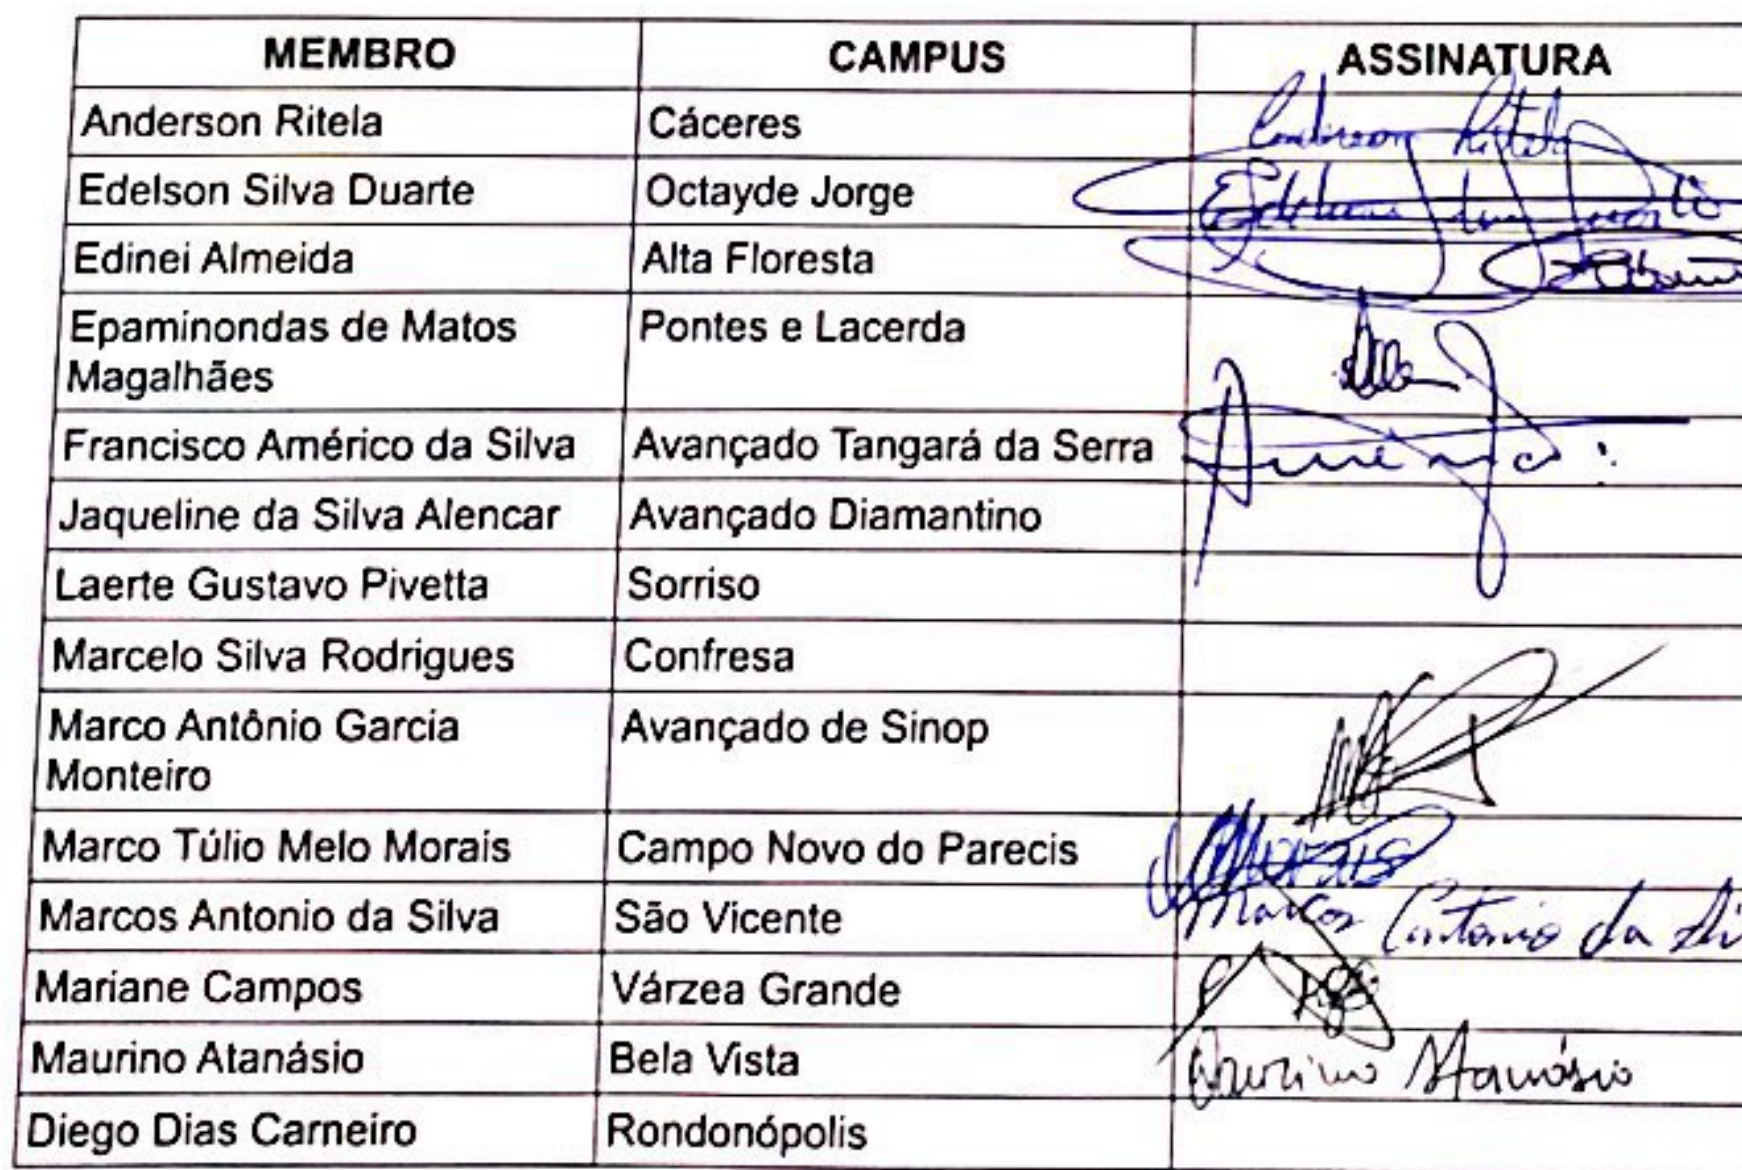 MEMBRO CAMPUS ASSINATURA
Anderson Ritela Cáceres Anderson Ritela
Edelson Silva Duarte Octayde Jorge Edelson Silva Duarte
Edinei Almeida Alta Floresta
Epaminondas de Matos Pontes e Lacerda
Magalhães
Francisco Américo da Silva Avançado Tangará da Serra
Jaqueline da Silva Alencar Avançado Diamantino
Laerte Gustavo Pivetta Sorriso
Marcelo Silva Rodrigues Confresa
Marco Antônio Garcia Avançado de Sinop
Monteiro
Marco Túlio Melo Morais Campo Novo do Parecis Morais
Marcos Antonio da Silva São Vicente Marcos Antonio da Sil
Mariane Campos Várzea Grande
Maurino Atanásio Bela Vista Maurino Atanásio
Diego Dias Carneiro Rondonópolis